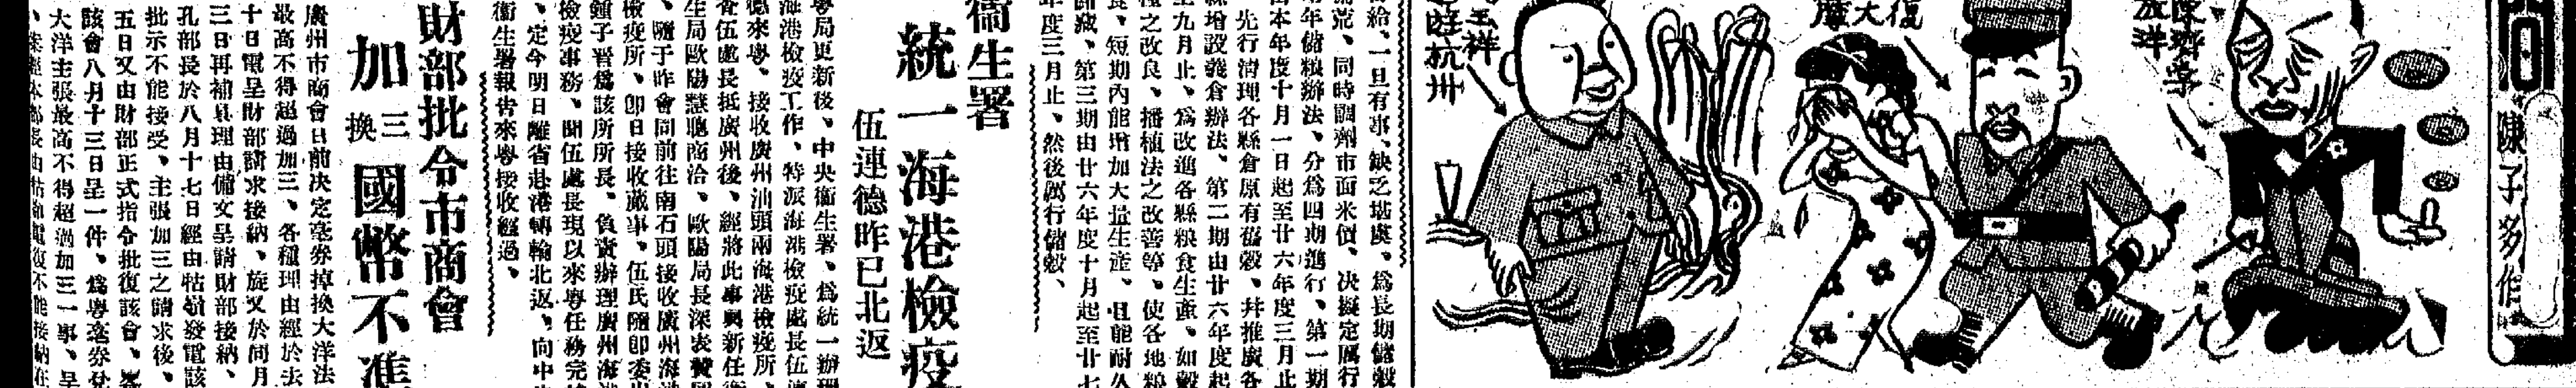 陳子多作
陳濟棠
放洋
復
大
馮玉祥
遊杭州
一旦有事、缺乏堪虞、爲長期儲穀
同時調劑市面米價、決擬定厲行
年儲粮辦法、分爲四期進行、第一期
本年度十月一日起至廿六年度三月止
先行清理各縣倉原有舊穀、幷推廣各
增設義倉辦法、第二期由廿六年度起
至九月止、爲改進各縣粮食生產、如穀
種之改良、播植法之改善等、使各地粮
食、短期內能增加大量生產、且能耐久
儲藏、第三期由廿六年度十月起至廿七
年度三月止、然後厲行儲穀、
衞生署
統一海港檢疫
伍連德昨已北返
粵局更新後、中央衞生署、爲統一辦理
海港檢疫工作、特派海港檢疫處長伍連
德來粵、接收廣州汕頭兩海港檢疫所、
查伍處長抵廣州後、經將此事與新任衞
生局歐陽慧聰商洽、歐陽局長深表贊同
、隨于昨會同前往南石頭接收廣州海港
檢疫所、卽日接收蕆事、伍氏隨卽委出
鍾子晋爲該所所長、負責辦理廣州海港
檢疫事務、聞伍處長現以來粵任務完
、定今明日離省赴港轉輪北返、向中央
衞生署報告來粵接收經過、
財部批令市商會
加三換國幣不准
廣州市商會日前决定毫劵掉換大洋法
最高不得超過加三、各種理由經於去
十日電呈財部請求接納、旋又於同月
三日再補具理由備文呈請財部接納、
孔部長於八月十七日經由牯嶺發電該
批示不能接受、主張加三之請求後、
五日又由財部正式指令批復該會、
該會八月十三日呈一件、爲粵毫劵兌
大洋主張最高不得超過加三一事、呈